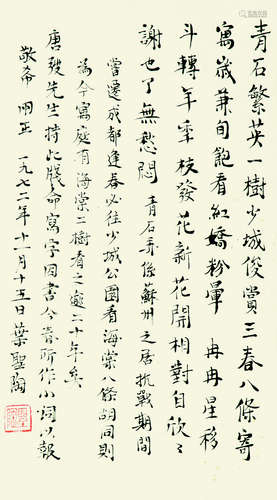 青石繁英一樹少城俊賞三春八條寄
寓歲兼旬飽看紅嬌粉暈 冉冉星移
斗轉年年枝發花新花開相對自欣々
謝也了無愁悶 青石弄係蘇州之居抗戰期間
嘗遷成都逢春必往少城公園看海棠八條胡同則
為今寓庭有海棠二樹看之逾二十年矣
唐先生持此牋命寫字因書今歲所作小詞以報
敬希 正 一九七二年十一月十五日葉聖陶